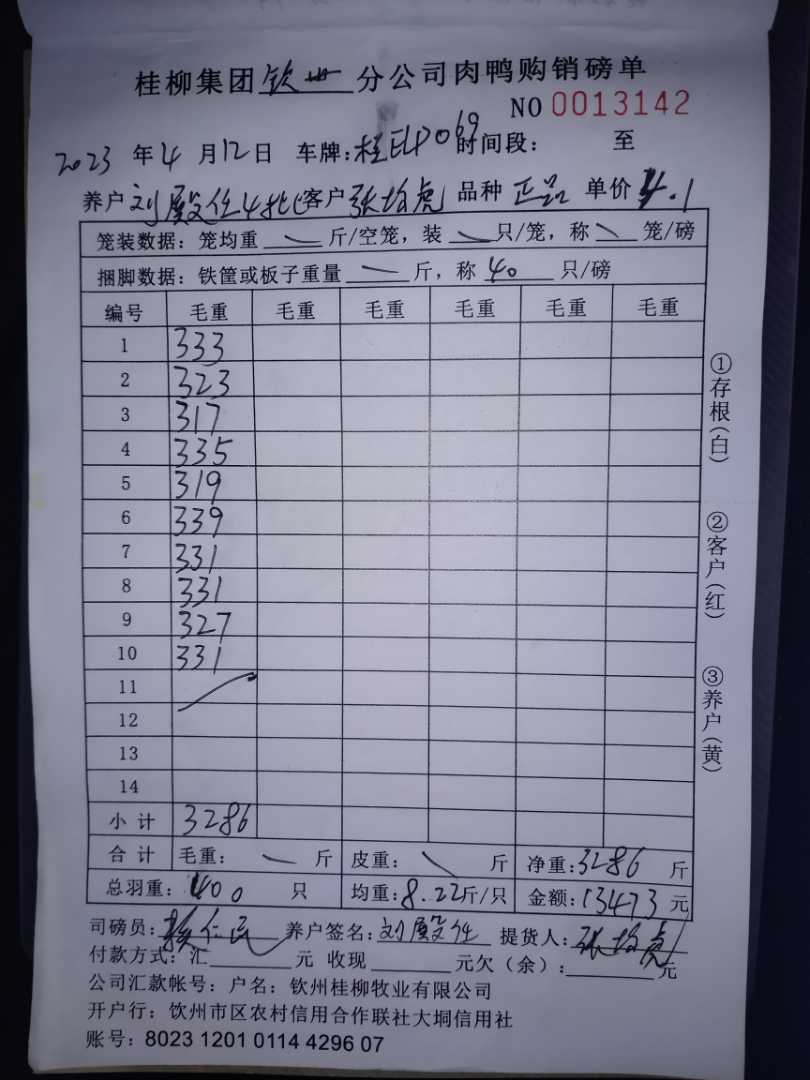 桂柳集团钦州分公司肉鸭购销磅单
NO 0013142
2023年4月12日 车牌:桂ELP069 时间段: 至
养户刘殿任4批客户张培虎 品种正品 单价4.1
笼装数据: 笼均重 斤/空笼, 装 只/笼, 称 笼/磅
捆脚数据: 铁筐或板子重量 斤, 称40只/磅
编号 毛重 毛重 毛重 毛重 毛重 毛重
1 333
2 323
3 317
4 335
5 319
6 339
7 331
8 331
9 327
10 331
11
12
13
14
小计 3286
合计 毛重: 斤 皮重: 斤 净重:3286斤
总羽重:400只 均重:8.22斤/只 金额:13473元
司磅员:赖仁民 养户签名:刘殿任 提货人:张培虎
付款方式:汇 元 收现 元欠(余): 元
公司汇款帐号: 户名: 钦州桂柳牧业有限公司
开户行: 钦州市区农村信用合作联社大垌信用社
账号: 8023 1201 0114 4296 07
①存根(白)
②客户(红)
③养户(黄)